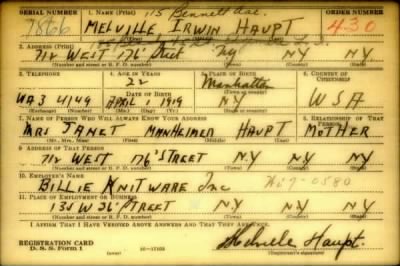 SERIAL NUMBER 1. NAME (Print) 115 Bennett Ave. ORDER NUMBER
7866 MELVILLE IRWIN HAUPT 430
(First) (Middle) (Last)
2. ADDRESS (Print)
712 WEST 176 Street NY N.Y N.Y.
(Number and street or R. F. D. number) (Town) (County) (State)
3. TELEPHONE 4. AGE IN YEARS 5. PLACE OF BIRTH 6. COUNTRY OF CITIZENSHIP
22 Manhattan
DATE OF BIRTH (Town or county)
WA 3 4149 APRIL 1, 1919 N.Y. USA
(Exchange) (Number) (Mo.) (Day) (Yr.) (State or country)
7. NAME OF PERSON WHO WILL ALWAYS KNOW YOUR ADDRESS 8. RELATIONSHIP OF THAT PERSON
MRS JANET MANHEIMER HAUPT MOTHER
(Mr., Mrs., Miss) (First) (Middle) (Last)
9. ADDRESS OF THAT PERSON
712 WEST 176 STREET N.Y N.Y N.Y
(Number and street or R. F. D. number) (Town) (County) (State)
10. EMPLOYER'S NAME
BILLIE KNITWARE Inc 7-0580
11. PLACE OF EMPLOYMENT OR BUSINESS
135 W 36 STREET N.Y N.Y N.Y
(Number and street or R. F. D. number) (Town) (County) (State)
I AFFIRM THAT I HAVE VERIFIED ABOVE ANSWERS AND THAT THEY ARE TRUE.
REGISTRATION CARD
D. S. S. Form 1 16—17105 Melville Haupt.
(Registrant's signature)